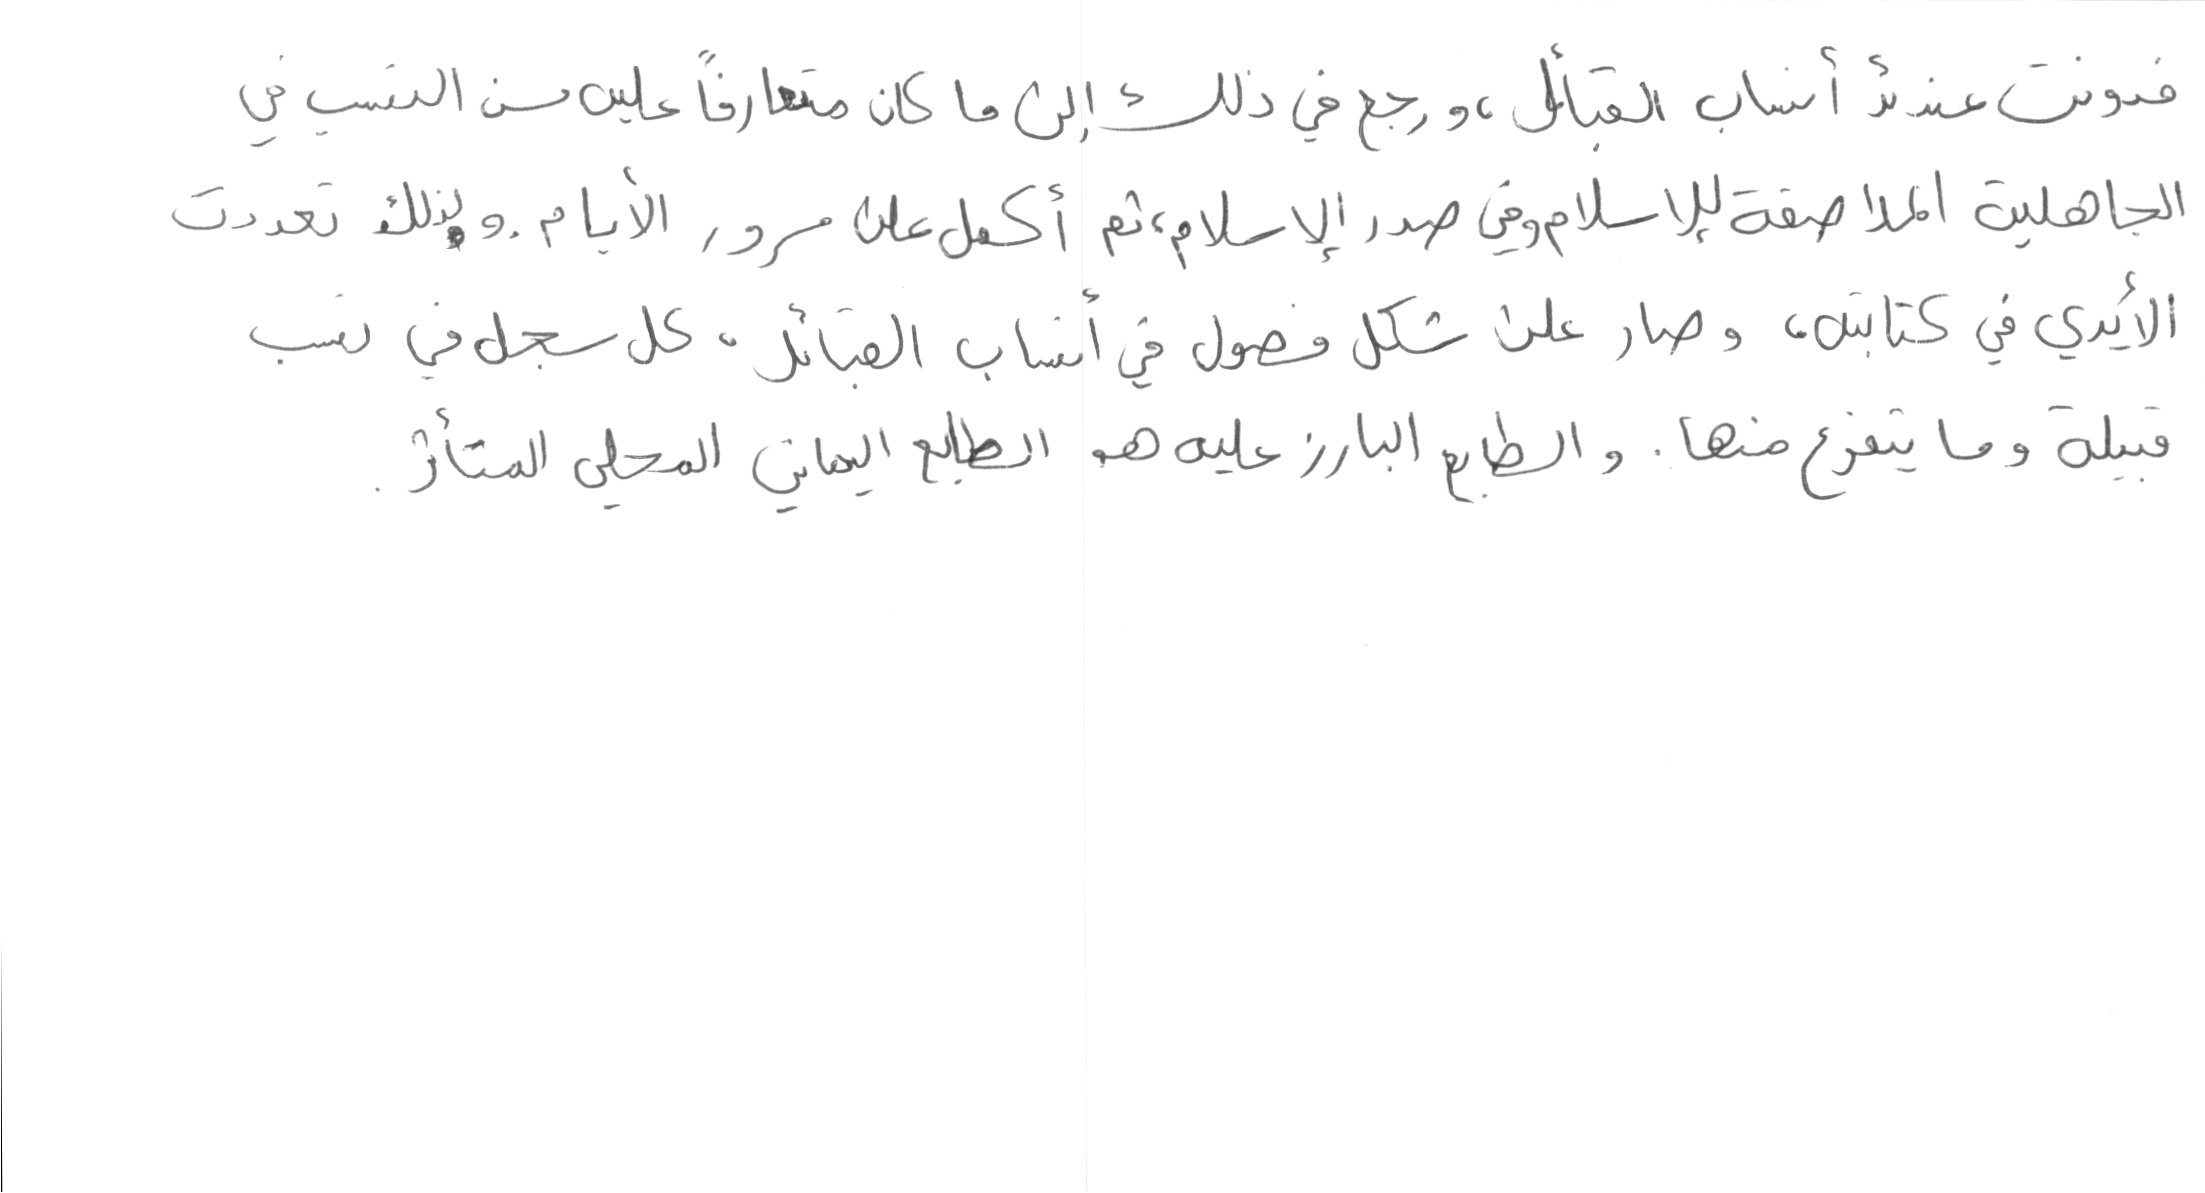 فدونت عندئذ أنساب القبائل، ورجع في ذلك إلى ما كان متعارفاً عليه من النسب في
الجاهلية الملاصقة للإسلام وفي صدر الإسلام، ثم أكمل على مرور الأيام. وبذلك تعددت
الأيدي في كتابته، وصار على شكل فصول في أنساب القبائل، كل سجل في نسب
قبيلة وما يتفرع منها. والطابع البارز عليه هو الطابع اليماني المحلي المتأثر.